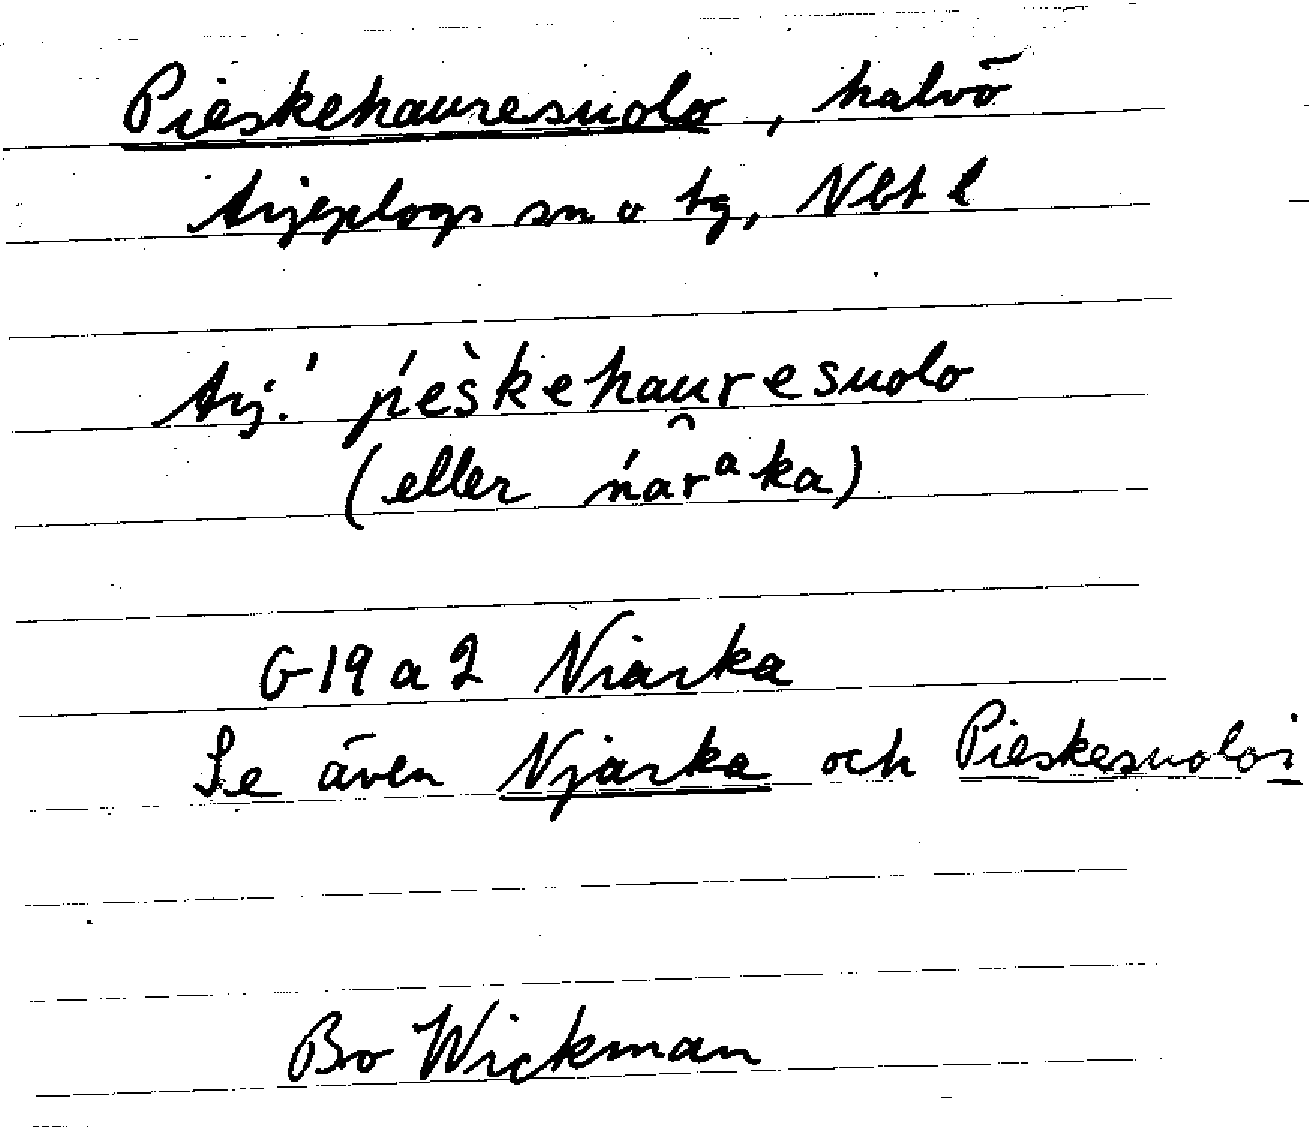 Pieskehauresuolo, halvö
Arjeplogs sn o tg, Nbt l
Arj. ' ṕieškehau̯resuolo
(eller ńarᵃka)
G 19 a 2 Niarka
Se även Njarka och Pieskesuoloi
Bo Wickman